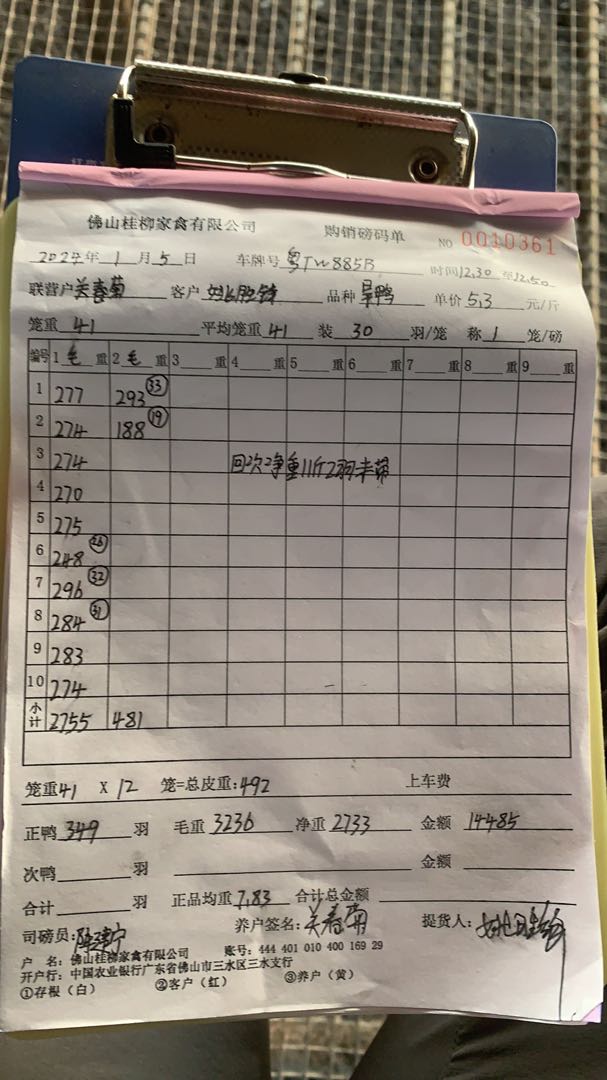 佛山桂柳家禽有限公司 购销磅码单 NO 0010361
2024年1月5日 车牌号粤TW885B 时间12.30至12.50
联营户关春菊 客户 品种 鸭 单价5.3元/斤
笼重41 平均笼重41 装30羽/笼 称1笼/磅
编号 1毛重 2毛重 3重 4重 5重 6重 7重 8重 9重
1 277 293 33
2 274 188 19
3 274 回次净重11斤2羽未带
4 270
5 275
6 248 26
7 296 32
8 284 31
9 283
10 274
小计 2755 481
笼重41 X 12 笼=总皮重:492 上车费
正鸭349羽 毛重3236 净重2733 金额14485
次鸭 羽 金额
合计 羽 正品均重7.83 合计总金额
司磅员: 养户签名:关春菊 提货人:
户 名:佛山桂柳家禽有限公司 账号:444 401 010 400 169 29
开户行:中国农业银行广东省佛山市三水区三水支行
①存根(白) ②客户(红) ③养户(黄)